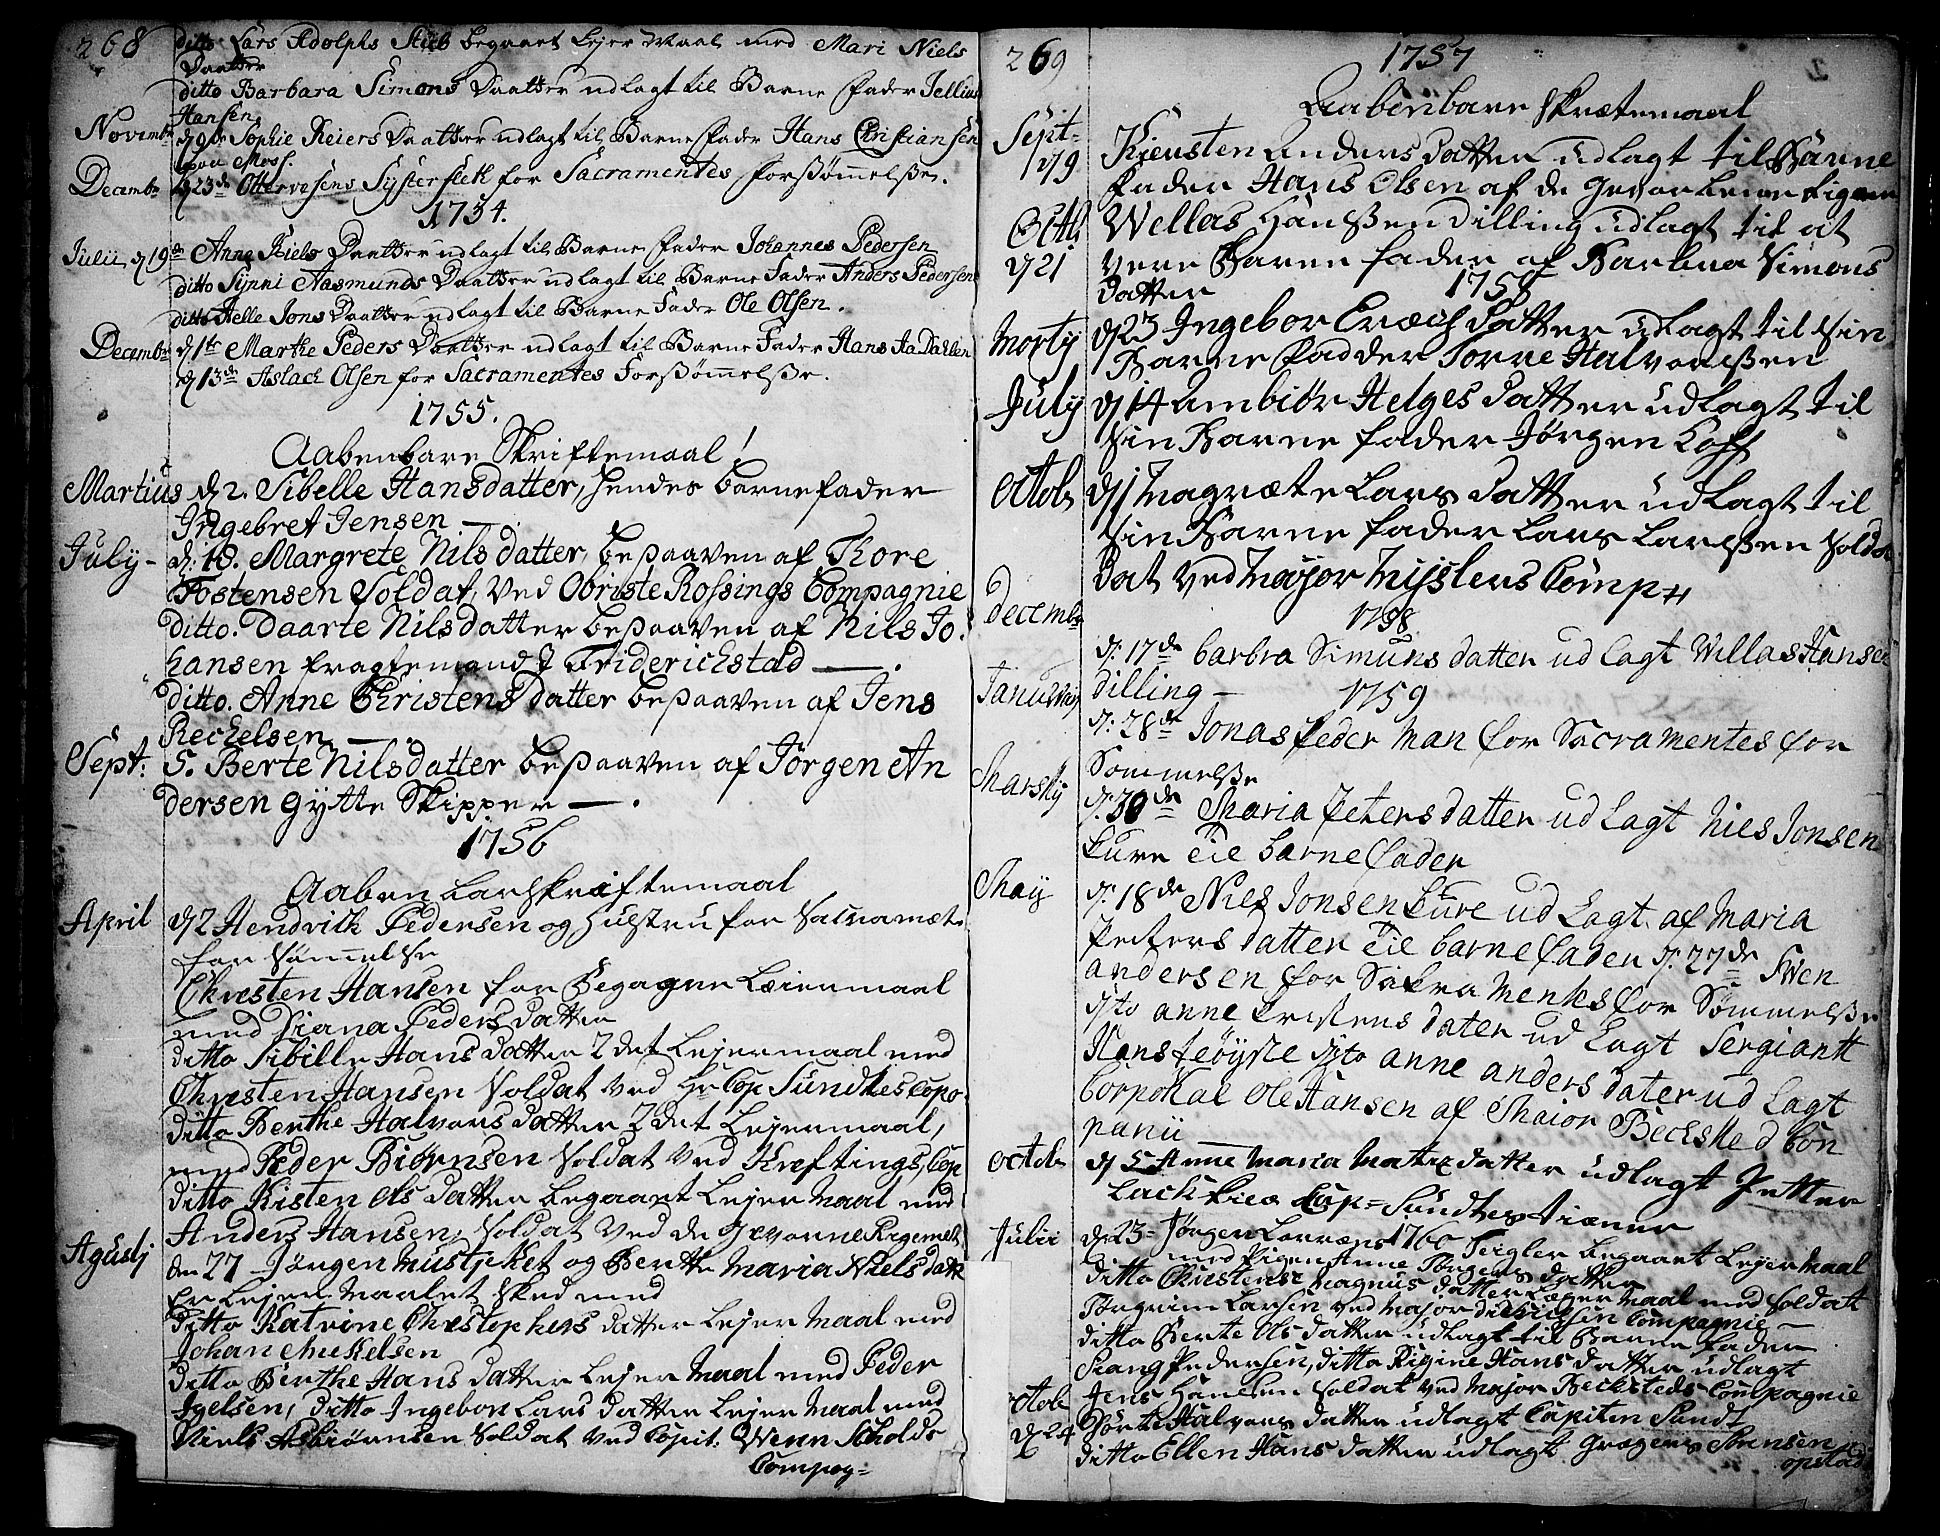 268
ditto Lars Adolphs Stub begaaet Lejer Maal med Mari Niels
Daatter
ditto Barbara Simens Daatter udlagt til Barne Fader Jellius
Hansen
Novembr d 9de Sophie Reiers Daatter udlagt til Barne Fader Hans Christiansen
paa Moss.
Decembr d 23de Ottervesens Systerflek for Sacramentes Forsømmelsse.
1754.
Julii d 19de Anne Niels Daatter udlagt til Barne Fader Johannes Pedersen
ditto Synni Aasmunds Daatter udlagt til Barne Fader Anders Pedersen
ditto Helle Jons Daatter udlagt til Barne Fader Ole Olsen.
Decembr d 1te Marthe Peders Daatter udlagt til Barne Fader Hans Aa Dahlen
d 13de Aslach Olsen for Sacramentes Forsømmelsse.
1755.
Aabenbare Skriftemaal!
Martius d. 2. Sibelle Hansdatter, hendes barnefader
Ingebret Jensen —
July - d: 18. Margrete Nilsdatter, besaaven af Thore
Tostensen Soldat, ved Obriste Rossings Compagnie
ditto. Daarte Nilsdatter besaaven af Nils Jo:
hansen fragtemand J Friderichstad — .
ditto. Anne Christensdatter besaaven af Jens
Rechelsen — .
Sept: 5. Berte Nilsdatter besaaven af Jørgen An
dersen Gytte Skipper — .
1756
Aabenbar Skriftemaal
April d 2 Hendrich Pedersen og Hustru for Sacramæte
for sømmelse
Christen Hansen for Begagen Leiermaal
med Siana Peders datter
ditto Sibille Hans datter 2 det Lejermaal med
Christen Hansen Soldat ved Hr Cap Sundtes Capo
ditto Berthe Halvors datter 2 det Lejermaal,
med Peder Biørnsen Soldat ved Kreftings Cap
ditto Kisten Ols datter begaaet Lejer Maal med
Anders Hansen, Soldat ved de Gevorne Rigement
Agustj den 27 Jørgen Mustjcket og Berthe Maria Niels datt
er Lejer Maalet sked med
ditto Katrine Christophers datter Lejer Maal med
Johan Mickelsen
ditto Berthe Hans datter Lejer Maal med Peder
Igelsen, ditto Ingebor Lars datter Lejer Maal med
Niels Asbiørnsen Soldat ved Capit. Wenn Scholds
Compag=
269
1757
Aabenbare Skrætemaal
Sept- d 9 Kiersten Anders datter udlagt til Barne
fader Hans Olsen af de Gevorbene Rigem
Octb d 21 Wellas Hanssen Dilling udlagt til at
vere Barne fader af Barbra Simons
datter
1758
Mortij d 23 Ingebor Erich datter udlagt til sin
Barne fadder Torre Halvorssen
July d 14 Ambiør Helges datter udlagt til
sin Barne fader Jørgen Loff
Octob d 1 Magræte Lars datter udlagt til
sin Barne fader Lars Larssen Sold
dat ved Major Nysslers Comp
1758
Decembr d: 17de barbra Simuns datter ud Lagt Willas Hansen
dilling —
1759
Januwary d: 28de Jonas Peder Man for Sacramentes for
Sømmelsse
Marsty d: 30de Maria Peters datter ud Lagt Nies Jonsen
Lure Til barne fader
May d: 18de Nies Jonsen Lure ud Lagt af Maria
Peters datter Til barne fader d: 27de Swen
andersen for Sakra Mentes for Sømmelsse
dto anne Cristens dater ud Lagt Sergiantt
Hans Fløyste dto anne anders dater ud Lagt
Corpokal Ole Hansen af Maior Beckste d Con
panii —
Octob d 5 Anne Maria Matiz datter udlagt Petter
Lack Cap= Sundtes tiener
1760
Julii d 23 Jørgen Lorrens Teigler begaaet Lejer Maal
med Pigen Anne Jørgens datter
ditto Christense Magnus datter Læger Maal med Soldatt
Torgrim Larsen ved Major Diderichsen Compagnie —
ditto Berte Ols datter udlagt til Barne fader
Siang Pedersen, ditto Rigine Hans datter udlagt
Jens Hansen Soldat ved Major Becksteds Compagnie
Octob d 24 Dorte Halvors datter udlagt Capiten Sundt
ditto Ellen Hans datter udlagt Gregers Sørensen
opstad